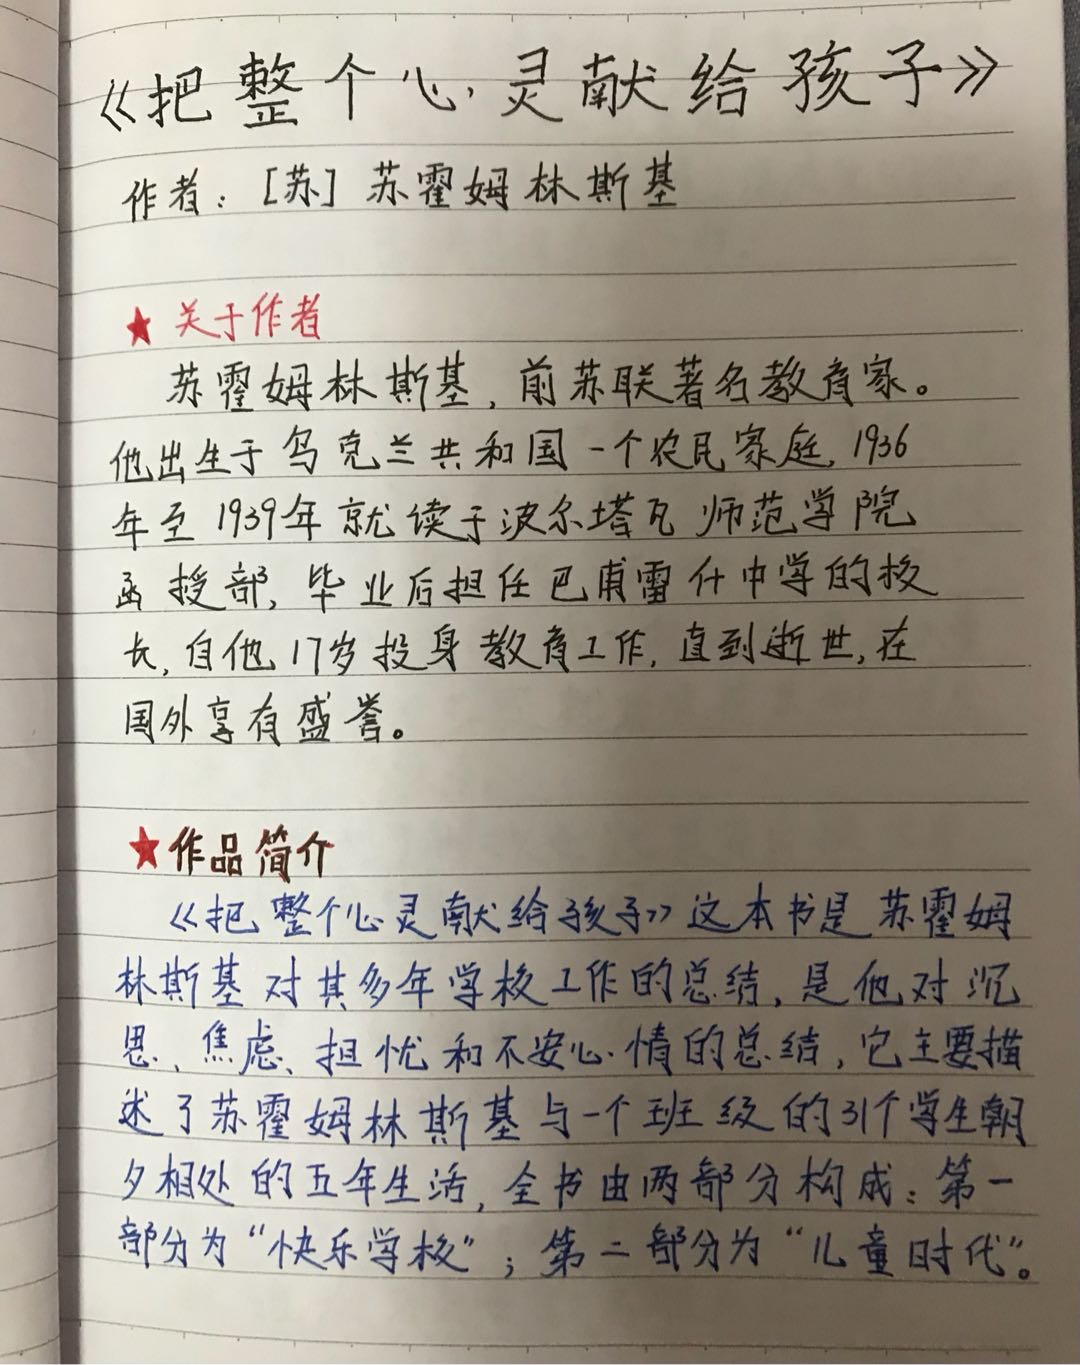 《把整个心灵献给孩子》
作者：[苏] 苏霍姆林斯基
★ 关于作者
苏霍姆林斯基，前苏联著名教育家。
他出生于乌克兰共和国一个农民家庭，1936
年至1939年就读于波尔塔瓦师范学院
函授部，毕业后担任巴甫雷什中学的校
长，自他17岁投身教育工作，直到逝世，在
国外享有盛誉。
★作品简介
《把整个心灵献给孩子》这本书是苏霍姆
林斯基对其多年学校工作的总结，是他对沉
思、焦虑、担忧和不安心情的总结，它主要描
述了苏霍姆林斯基与一个班级的31个学生朝
夕相处的五年生活，全书由两部分构成：第一
部分为“快乐学校”；第二部分为“儿童时代”。